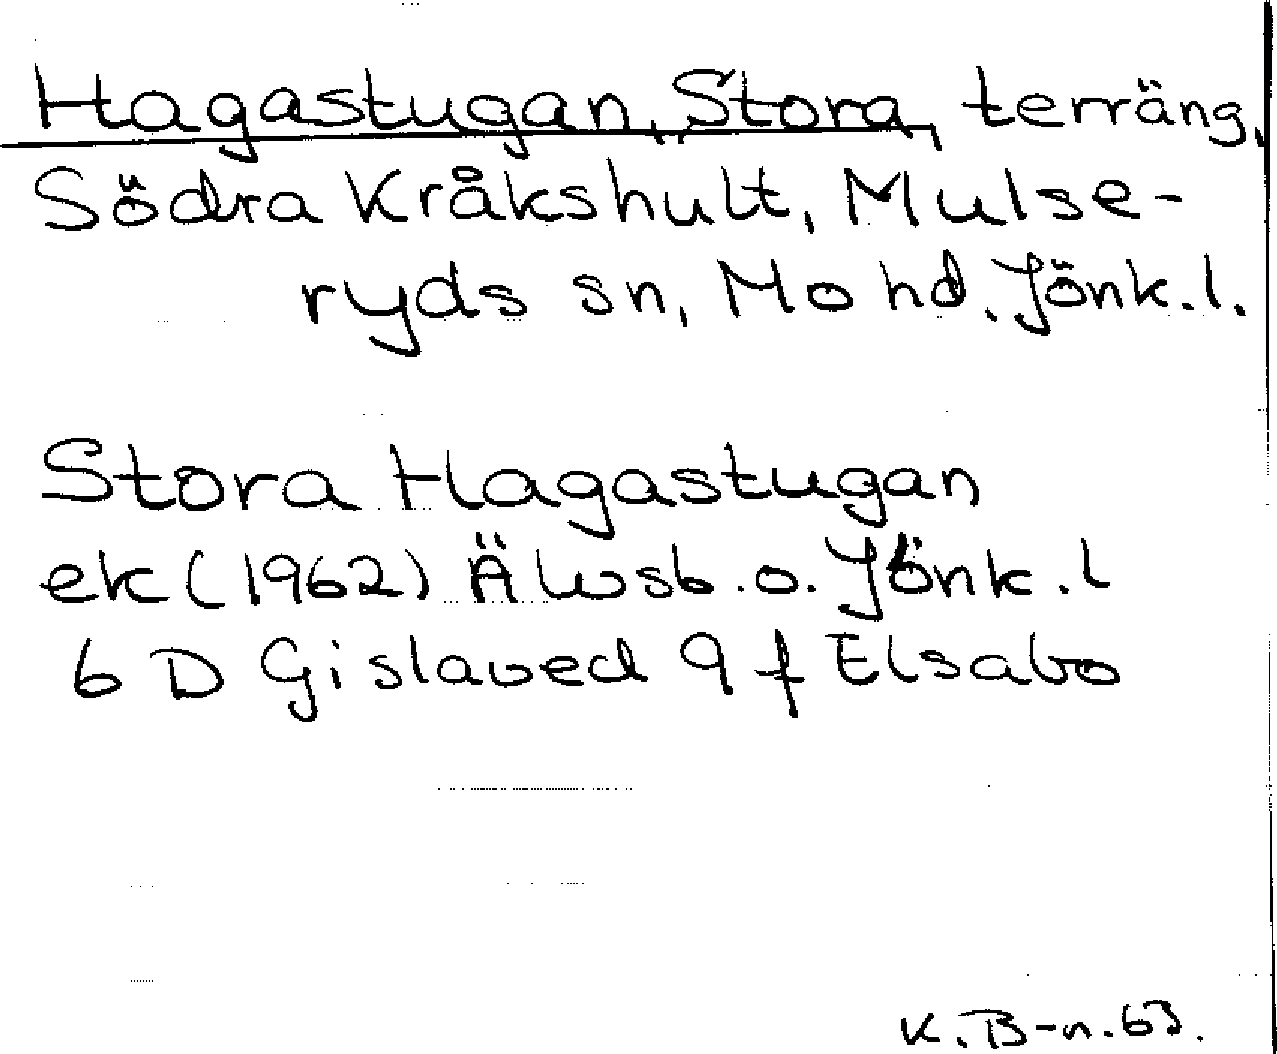 Hagastugan, Stora, terräng,
Södra Kråkshult, Mulse-
ryds sn, Mo hd. Jönk.l.
Stora Hagastugan
ek (1962) Älvsb. o. Jönk.l
6 D Gislaved 9 f Elsabo
K.B-n.63.